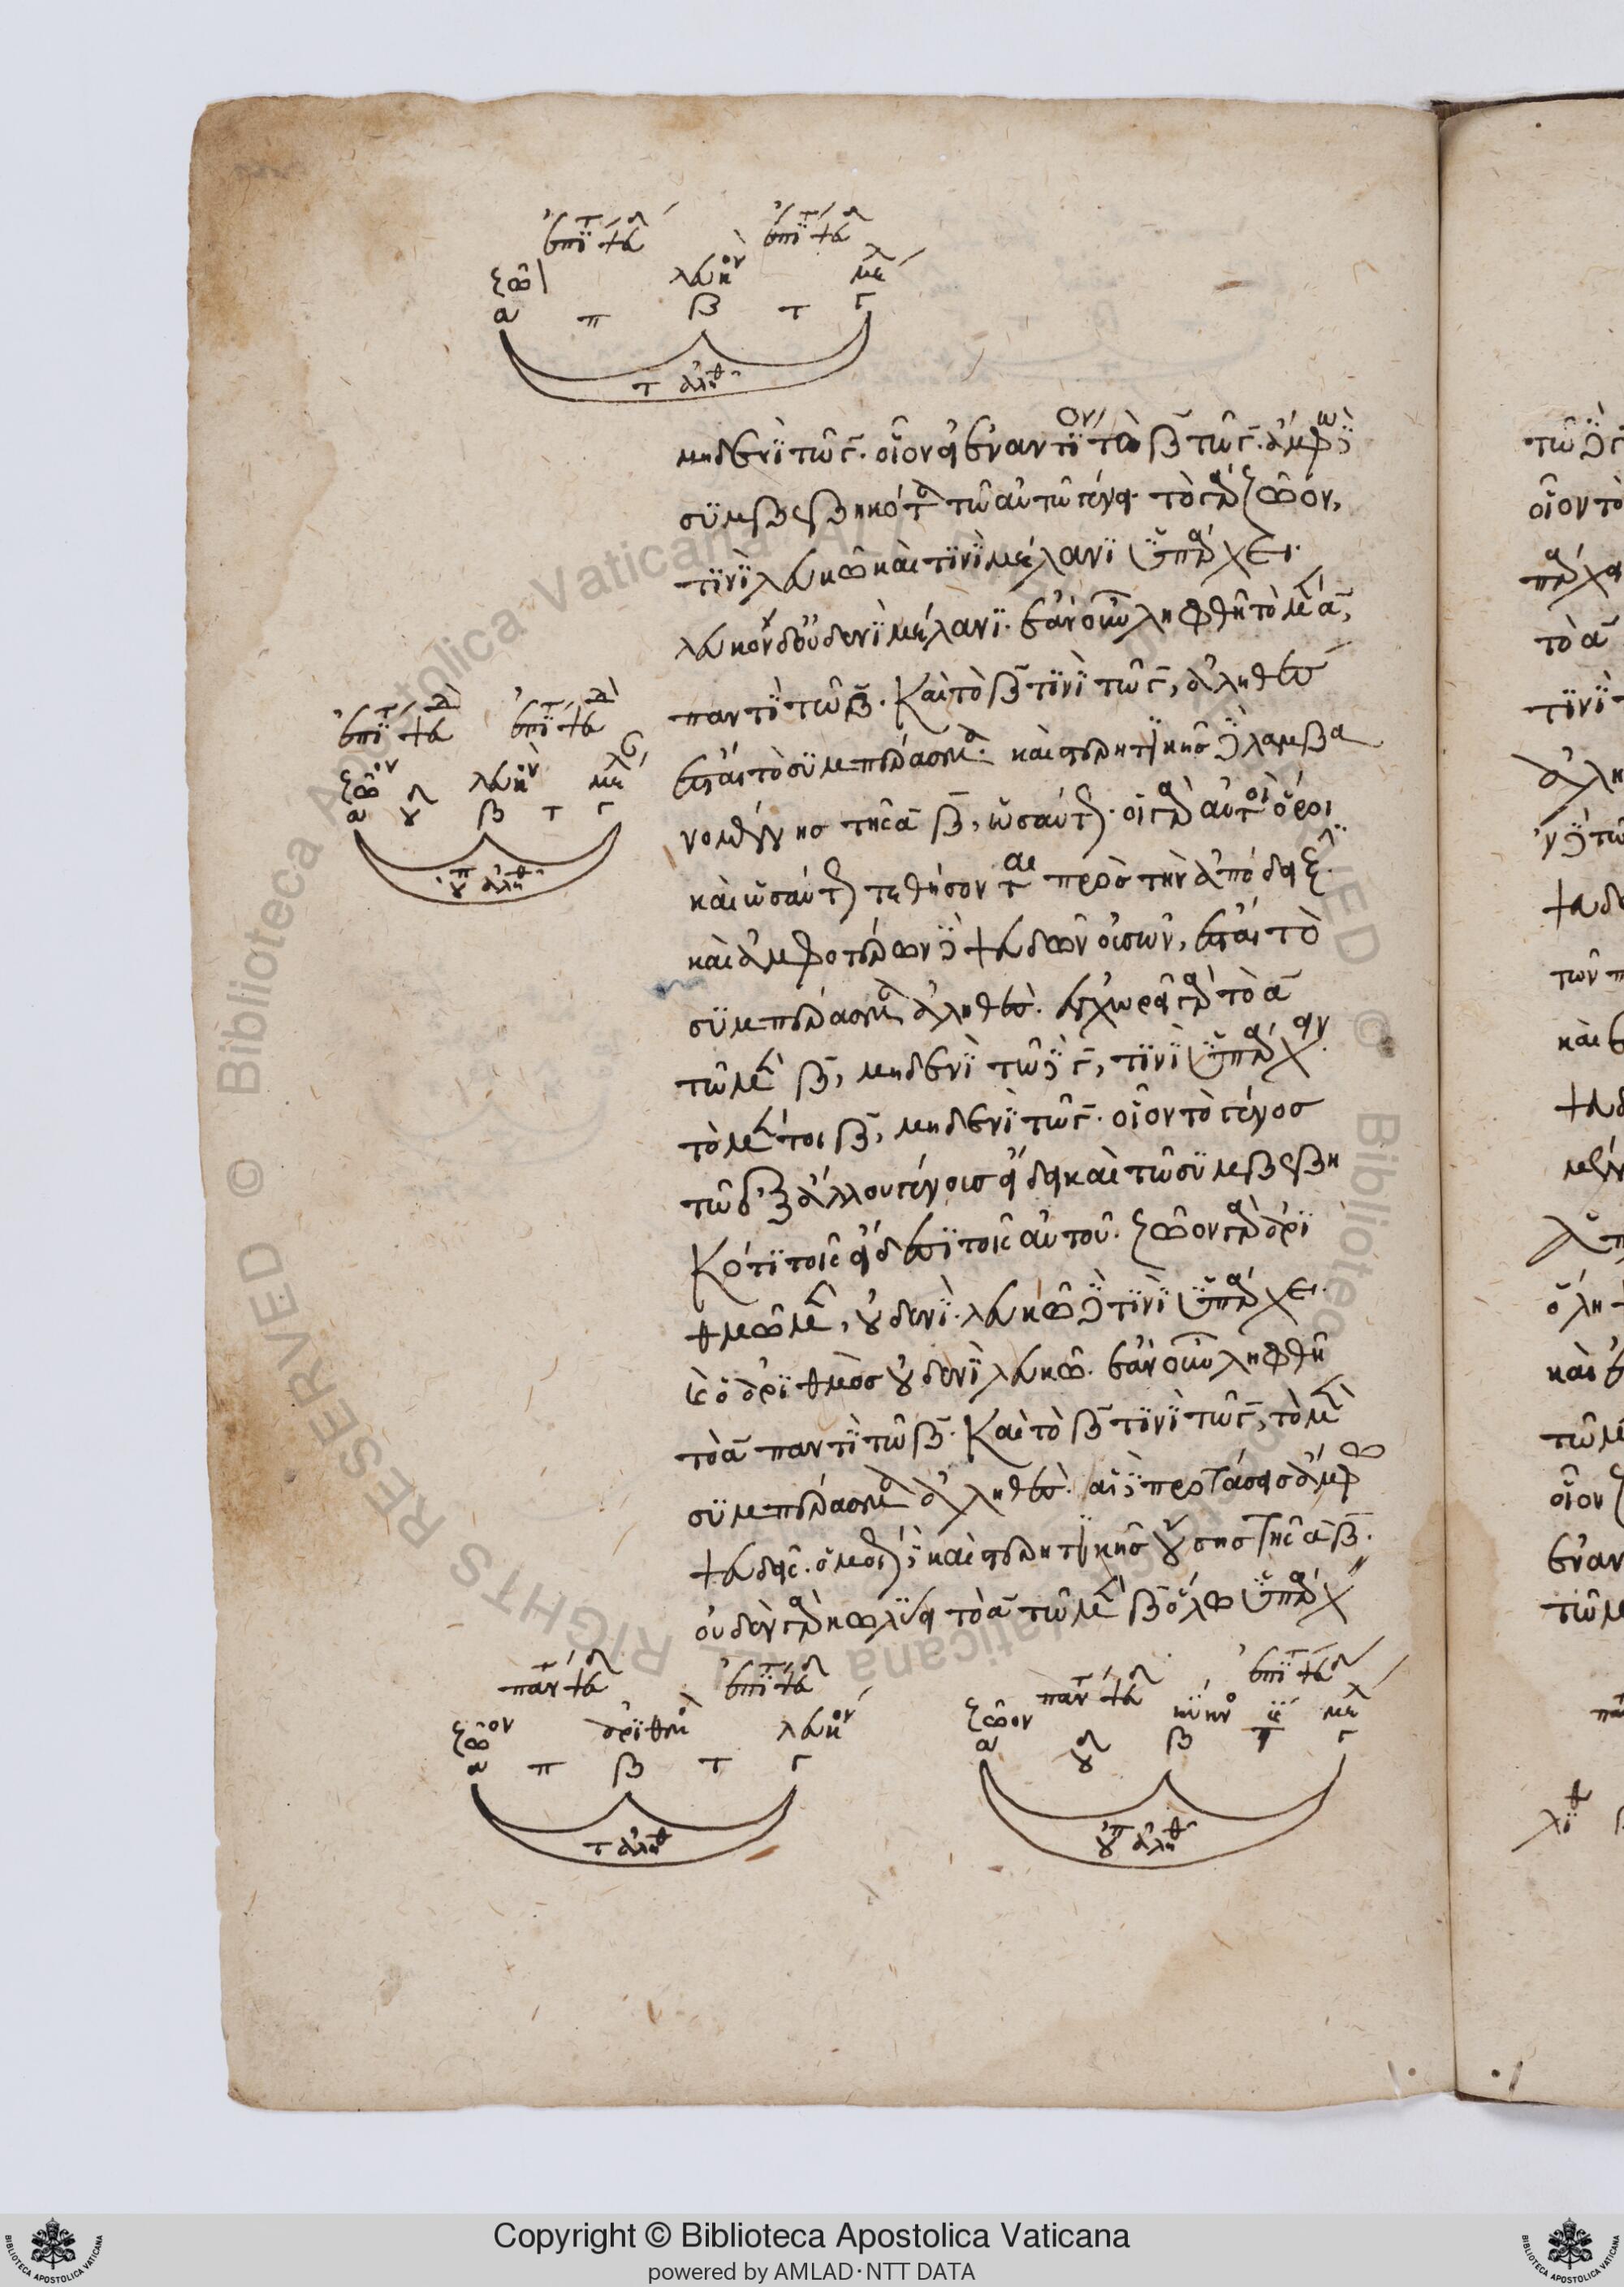 ἐπί τι ψευ ἐπί τι ψευ
ζῶον λευκὸν μέλαν
α π β τ γ
τ ἀληθ
μηδενὶ τῶ γ. οἷον εἰ ἐναντίον τὸ β τῶ γ. ἄμφω δὲ
συμβεβηκότα τῶ αὐτῶ γένει. τὸ γὰρ ζῶον,
τινὶ λευκῶ καὶ τινὶ μέλανι ὑπάρχει.
λευκὸν δ' οὐδενὶ μέλανι. ἐὰν οὖν ληφθῆ τὸ μὲν α,
παντὶ τῶ β. Καὶ τὸ β τινὶ τῶ γ, ἀληθὲς
ἔσται τὸ συμπέρασμα. καὶ στερητικῆς δὲ λαμβα
νομένης τῆς α β, ὡσαύτως. οἱ γὰρ αὐτοὶ ὅροι
καὶ ὡσαύτως τεθήσονται πρὸς τὴν ἀπόδειξιν.
καὶ ἀμφοτέρων δὲ ψευδῶν οὐσῶν, ἔσται τὸ
συμπέρασμα ἀληθές. ἐγχωρεῖ γὰρ τὸ α
τῶ μὲν β, μηδενὶ τῶ δὲ γ, τινὶ ὑπάρχειν.
τὸ μέντοι β, μηδενὶ τῶ γ. οἷον τὸ γένος
τῶ ἐξ ἄλλου γένους εἴδει καὶ τῶ συμβεβη
Κότι τοῖς εἴδεσι τοῖς αὐτοῦ. ζῶον γὰρ ἀρι
θμῶ μὲν, οὐδενὶ. λευκῶ δὲ τινὶ ὑπάρχει.
καὶ ὁ ἀριθμὸς οὐδενὶ λευκῶ. ἐὰν οὖν ληφθῆ
τὸ α παντὶ τῶ β. Καὶ τὸ β τινὶ τῶ γ, τὸ μὲν
συμπέρασμα ἀληθές. αἱ δὲ προτάσεις ἄμφω
ψευδεῖς. ὁμοίως δὲ καὶ στερητικῆς οὔσης τῆς α β.
οὐδὲν γὰρ κωλύει τὸ α τῶ μὲν β ὅλω ὑπάρχ
ἐπί τι ψευ ἐπί τι ψευ
ζῶον λευκὸν μέλαν
α β τ γ
ἀληθ
ψευ ἐπί τι ψευ
ζῶον ἀριθμὸ λευκόν
α π β τ γ
τ ἀληθ
ψευ ἐπί τι ψευ
ζῶον μέλ
α β τ γ
ἀληθ
Copyright © Biblioteca Apostolica Vaticana
powered by AMLAD·NTT DATA